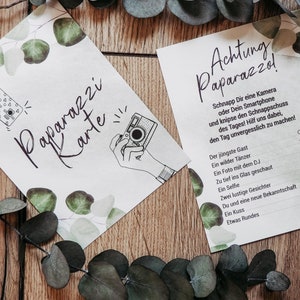 Paparazzi
Karte
Achtung
Paparazzo!
Schnapp Dir eine Kamera
oder Dein Smartphone
und knipse den Schnappschuss
des Tages! Hilf uns dabei,
den Tag unvergesslich zu machen!
Der jüngste Gast
Ein wilder Tänzer
Ein Foto mit dem DJ
Zu tief ins Glas geschaut
Ein Selfie
Zwei lustige Gesichter
Du und eine neue Bekanntschaft
Ein Kuss
Etwas Rundes